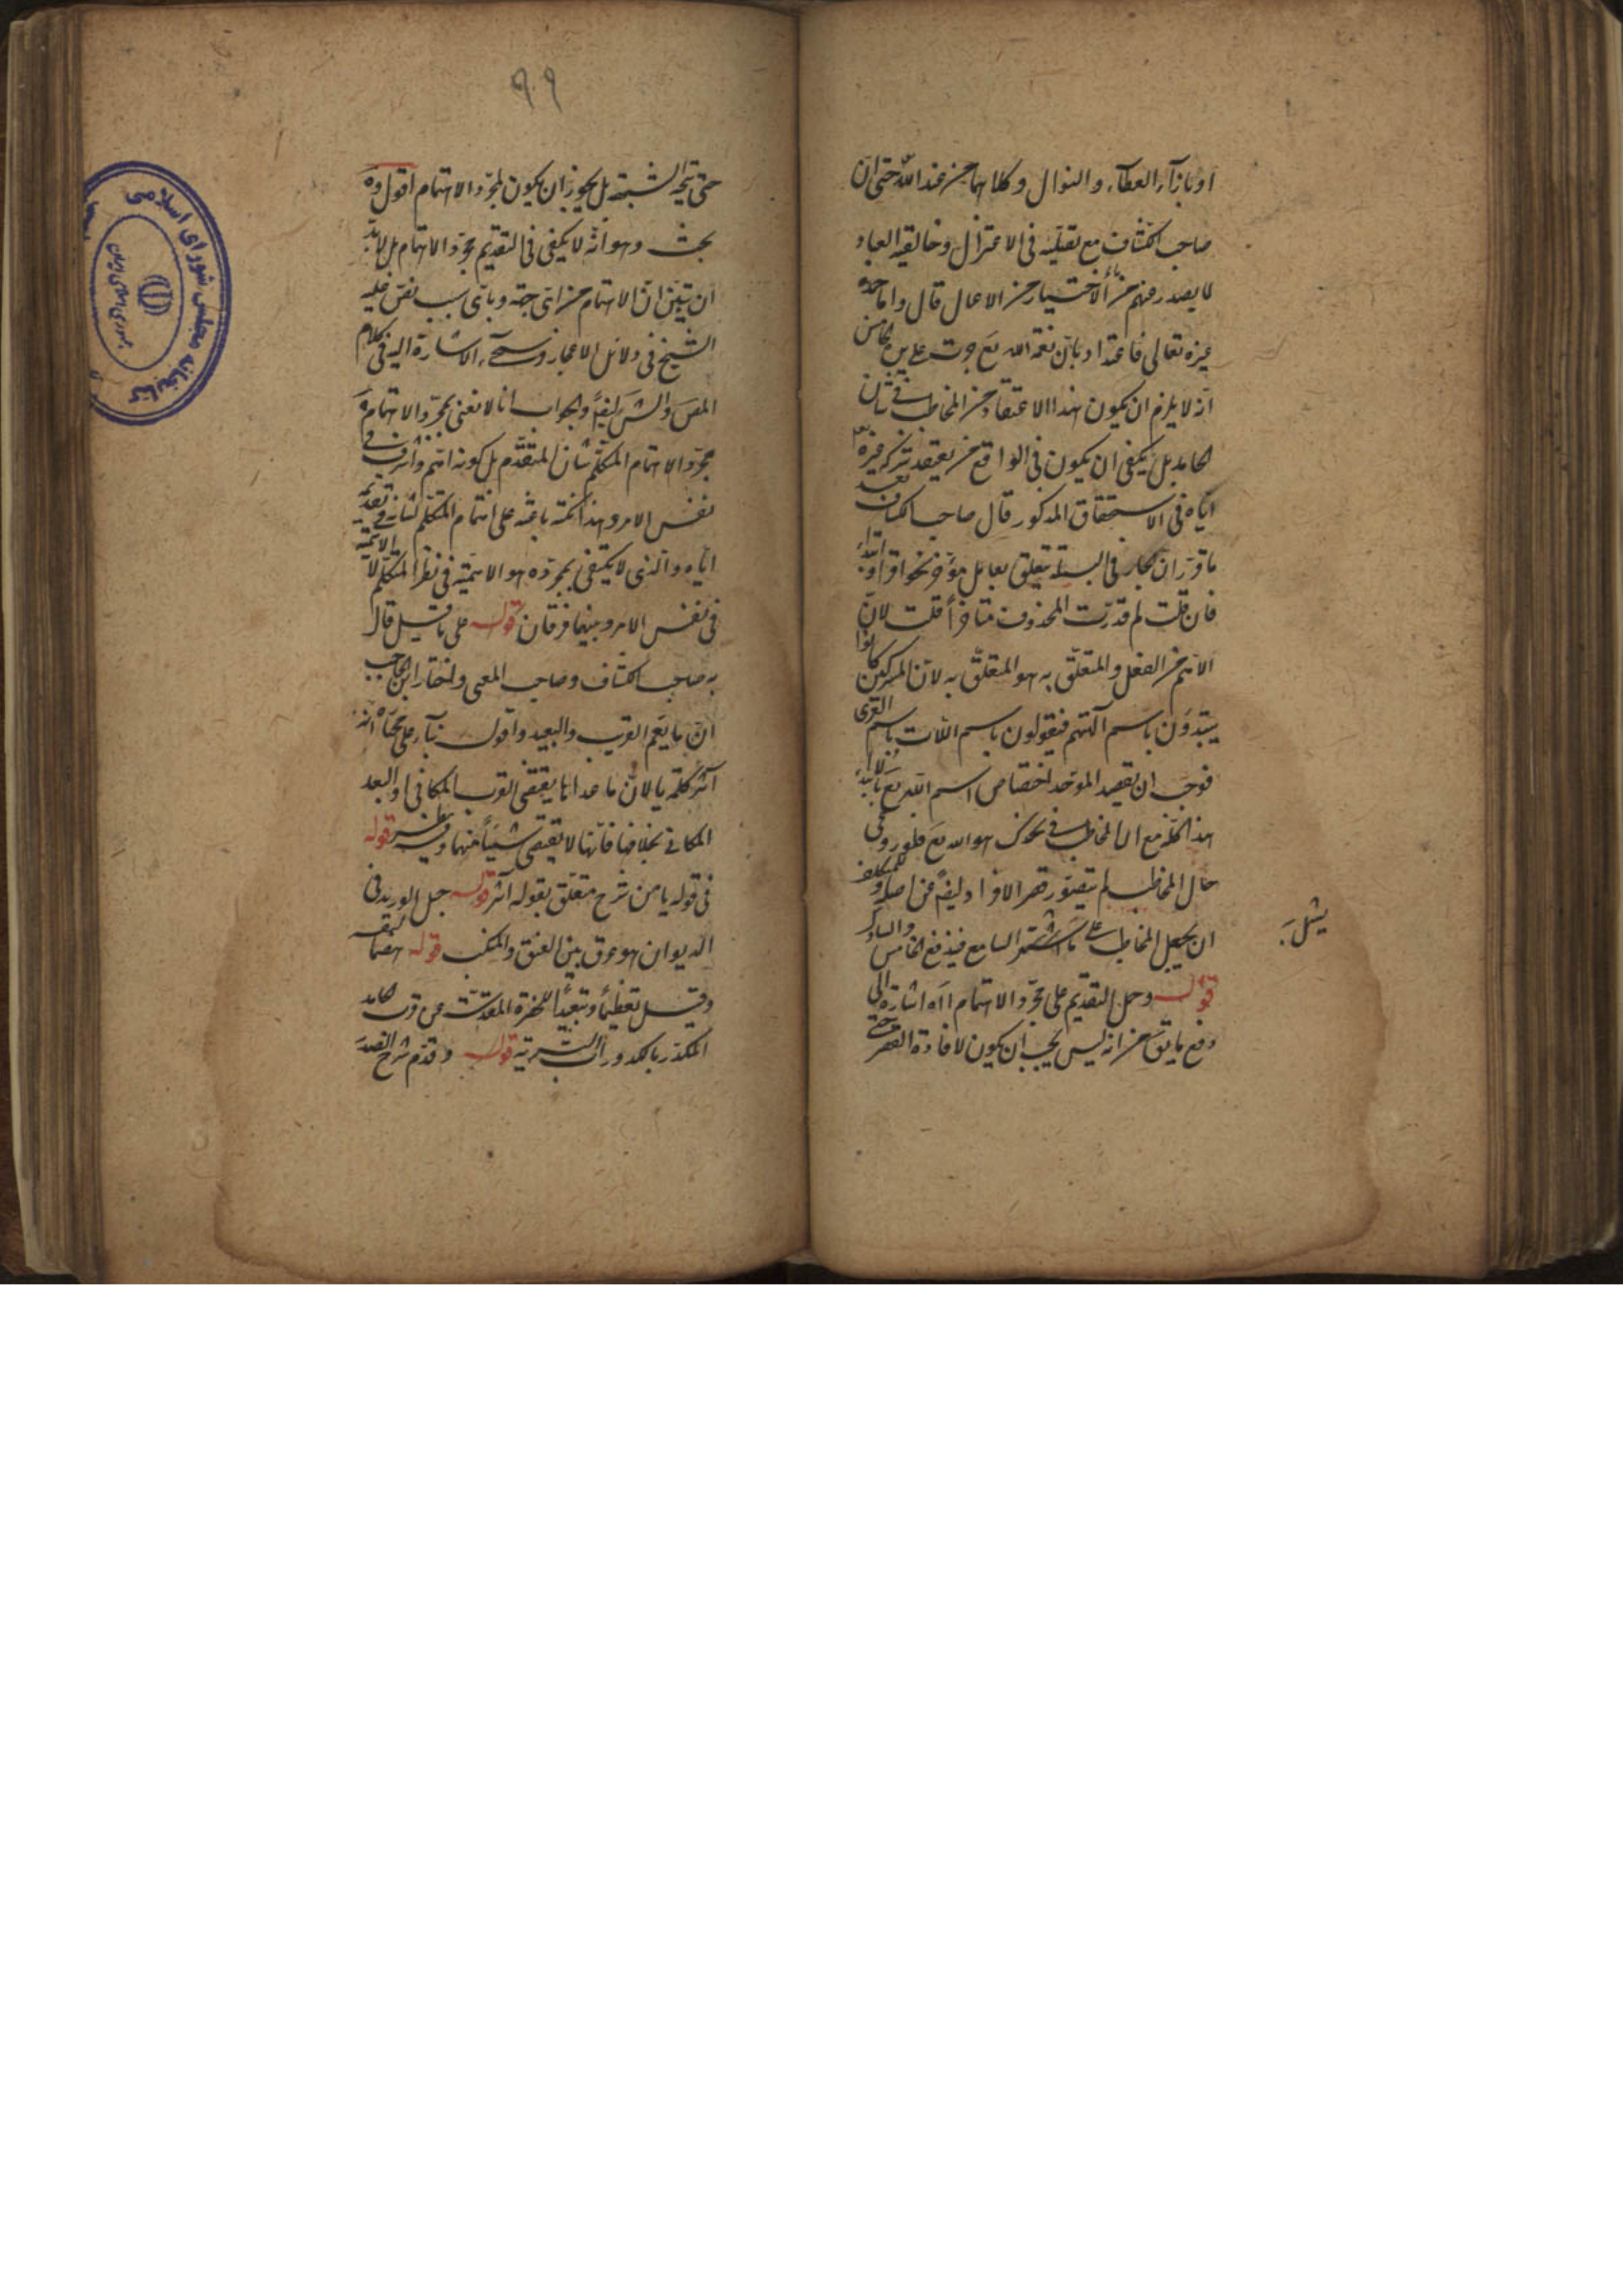 او بازآء العطآء والنوال وكلاهما من عند الله حتى ان
صاحب الكشاف مع تصلبه فى الاعتزال وخالقية العباد
لما يصدر عنهم من الاختيار من الاعمال قال واما حمد
غيره تعالى فاعتداد بان نعمة الله تع جرت على يد الخامس
انه لا يلزم ان يكون هذا الاعتقاد من المخاطب فى شان
الحامد بل يكفى ان يكون فى الواقع من يعتقد شركة غيره
اياه فى الاستحقاق المذكور قال صاحب الكشاف بعد
ما قرر ان الجار فى البسملة متعلق بعامل مؤخر نحو اقرأ او ابتدا
فان قلت لم قدرت المحذوف متاخرا قلت لان
الاهم من الفعل والمتعلق به هو المتعلق به لان المشركين كانوا
يبتدؤن باسم آلهتهم فيقولون باسم اللات باسم العزى
فوجب ان يقصد الموحد اختصاص اسم الله تع بالابتداء
هذا كله مع ان المخاطب فى نحو هو الله تع فلو روعى
حال المخاطب لم يتصور قصر الافراد ايضا عن اصله وللمتكلف
ان يجعل المخاطب على السامع فيدفع الخامس والسادس
يشمل
قوله وحمل التقديم على مجرد الاهتمام اه اشارة الى
دفع ما يق من انه ليس يجب ان يكون لافادة القصر حتى
٩٩
حتى يتجه الشبهة بل يجوز ان يكون لمجرد الاهتمام اقول وه
بحث وهو انه لا يكفى فى التقديم مجرد الاهتمام بل لابد
ان يتبين ان الاهتمام من اى جهة وباى سبب نص عليه
الشيخ فى دلائل الاعجاز وستجىء الاشارة اليه فى كلام
المص والش ايضا والجواب انا لا نعنى بمجرد الاهتمام
مجرد الاهتمام المتكلم بشان المتقدم بل كونه اهم واشرف فى
نفس الامر وهذا نكتة باعثة على اهتمام المتكلم لشانه فى تقديمه
اياه والذى لا يكتفى بمجرده هو الاهمية فى نظر المتكلم لا الاهمية
فى نفس الامر وبينهما فرقان قوله على ما قيل قال
به صاحب الكشاف وصاحب المغنى واختار ابن الحاجب
ان يا يعم القريب والبعيد واقول بناء على انه
آثر كلمة يا لان ما عداها يقتضى القرب المكانى او البعد
المكانى بخلافها فانها لا يقتضى شيئا منهما قوله
فى قوله يا من شرح متعلق بقوله آثر قوله حبل الوريد فى
الديوان هو عرق بين العنق والمنكب قوله هضما لنفسه
وقيل تعظيما وتبعيدا للحضرة المقدسة عن قرب الحامد
المكدر بالكدورات البشرية قوله وقدم شرح الصدر